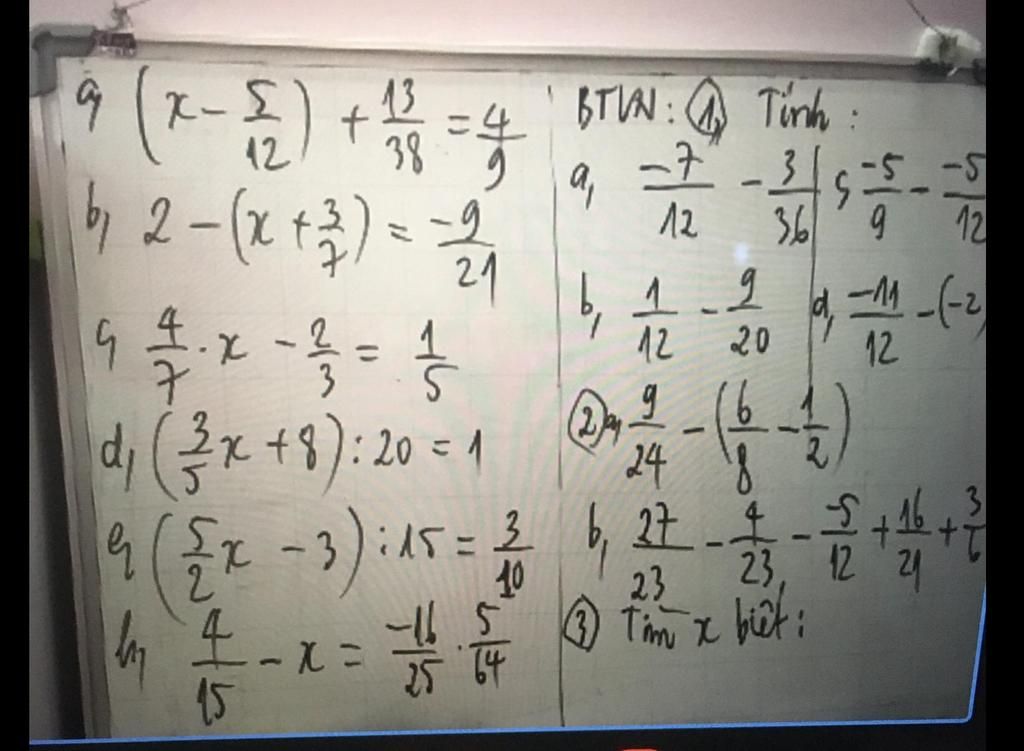 a, (x - 5/12) + 13/38 = 4/9
b, 2 - (x + 3/7) = -9/21
c, 4/7 . x - 2/3 = 1/5
d, (3/5 x + 8) : 20 = 1
e, (5/2 x - 3) : 15 = 3/10
h, 4/15 - x = -16/25 . 5/64
BTVN: 1, Tính :
a, -7/12 - 3/36
c, -5/9 - -5/12
b, 1/12 - 9/20
d, -11/12 - (-2
2 a, 9/24 - (6/8 - 1/2)
b, 27/23 - 4/23 - -5/12 + 16/21 + 3/6
3 Tìm x biết :